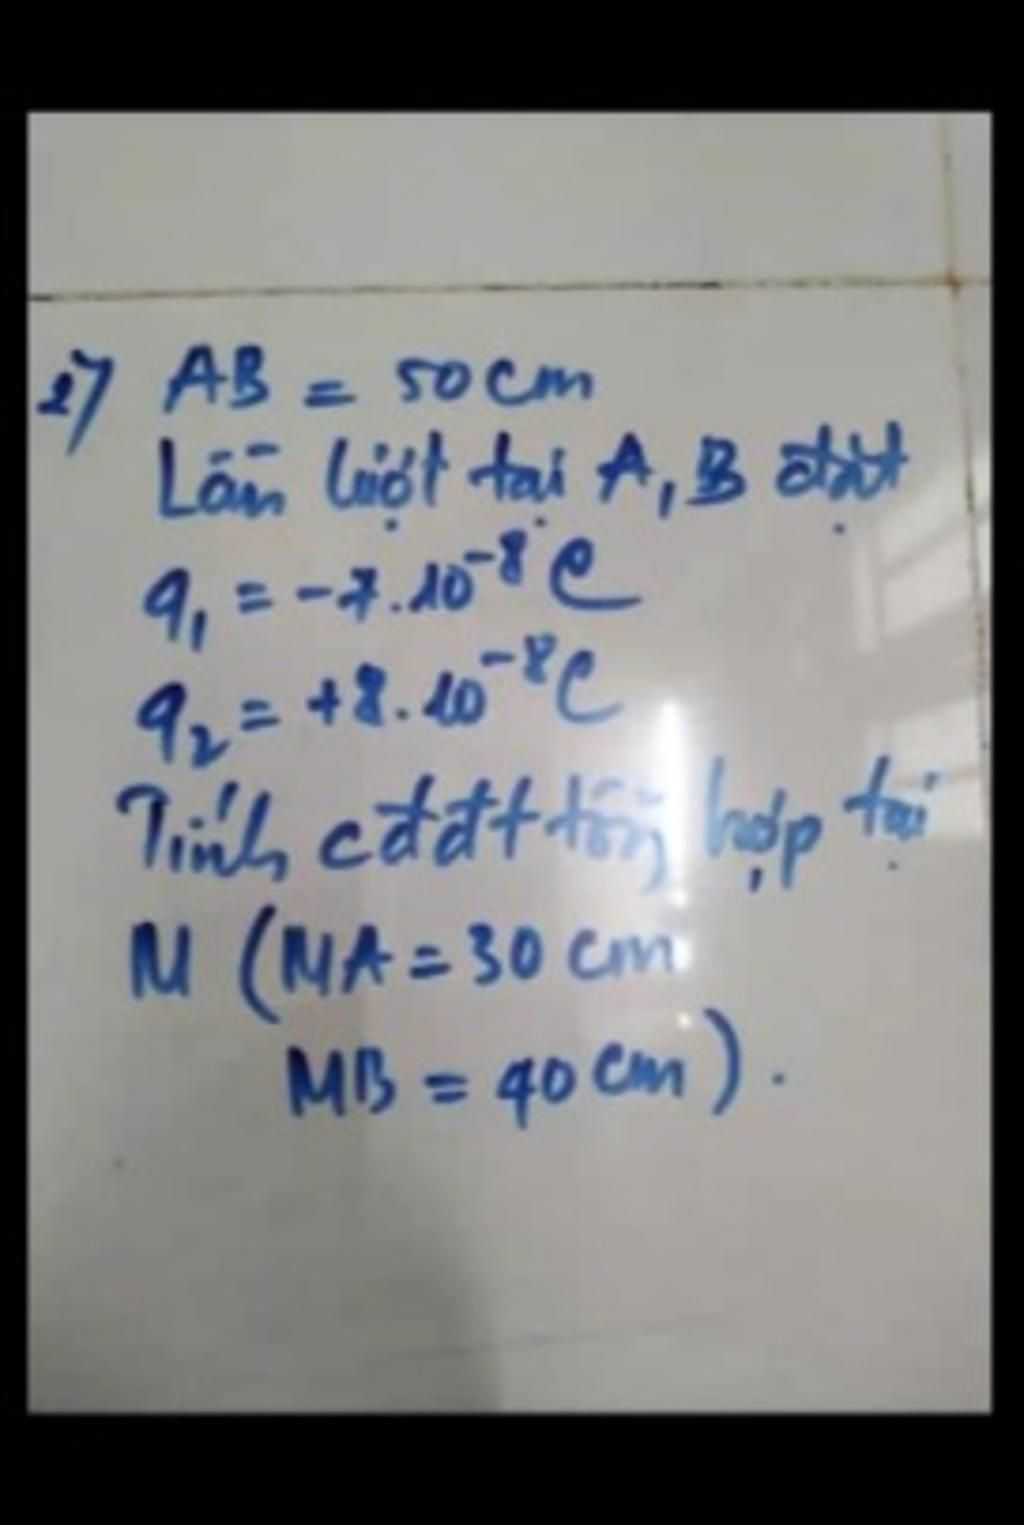 2) AB = 50 cm
Lần lượt tại A, B đặt
q₁ = -7.10⁻⁸ C
q₂ = +8.10⁻⁸ C
Tính cđđt tổng hợp tại
M (MA = 30 cm
MB = 40 cm).